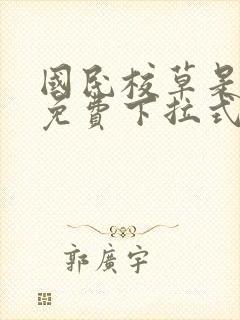 國民校草是
免費下拉式
郭廣宇